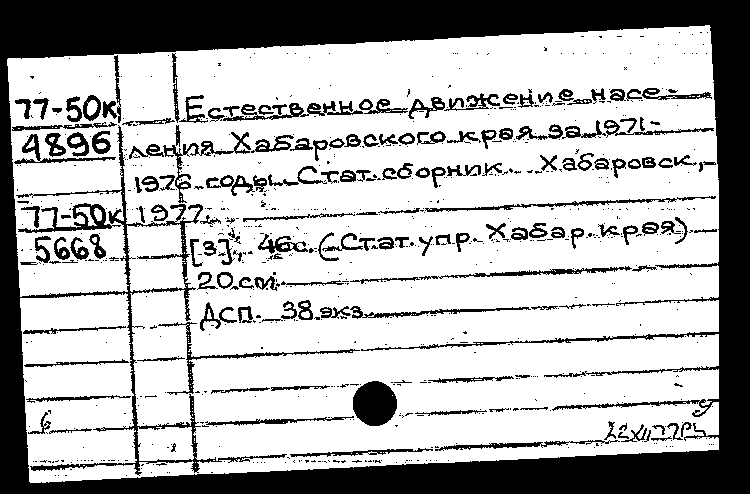 77-50к Естественное движение насе-
4896 ления Хабаровского края за 1971-
1976 годы. Стат. сборник. Хабаровск,
77-50к 1977.
5668 [3], 46с. (Стат. упр. Хабар. края)
20 см.
Дсп. 38 экз.
6